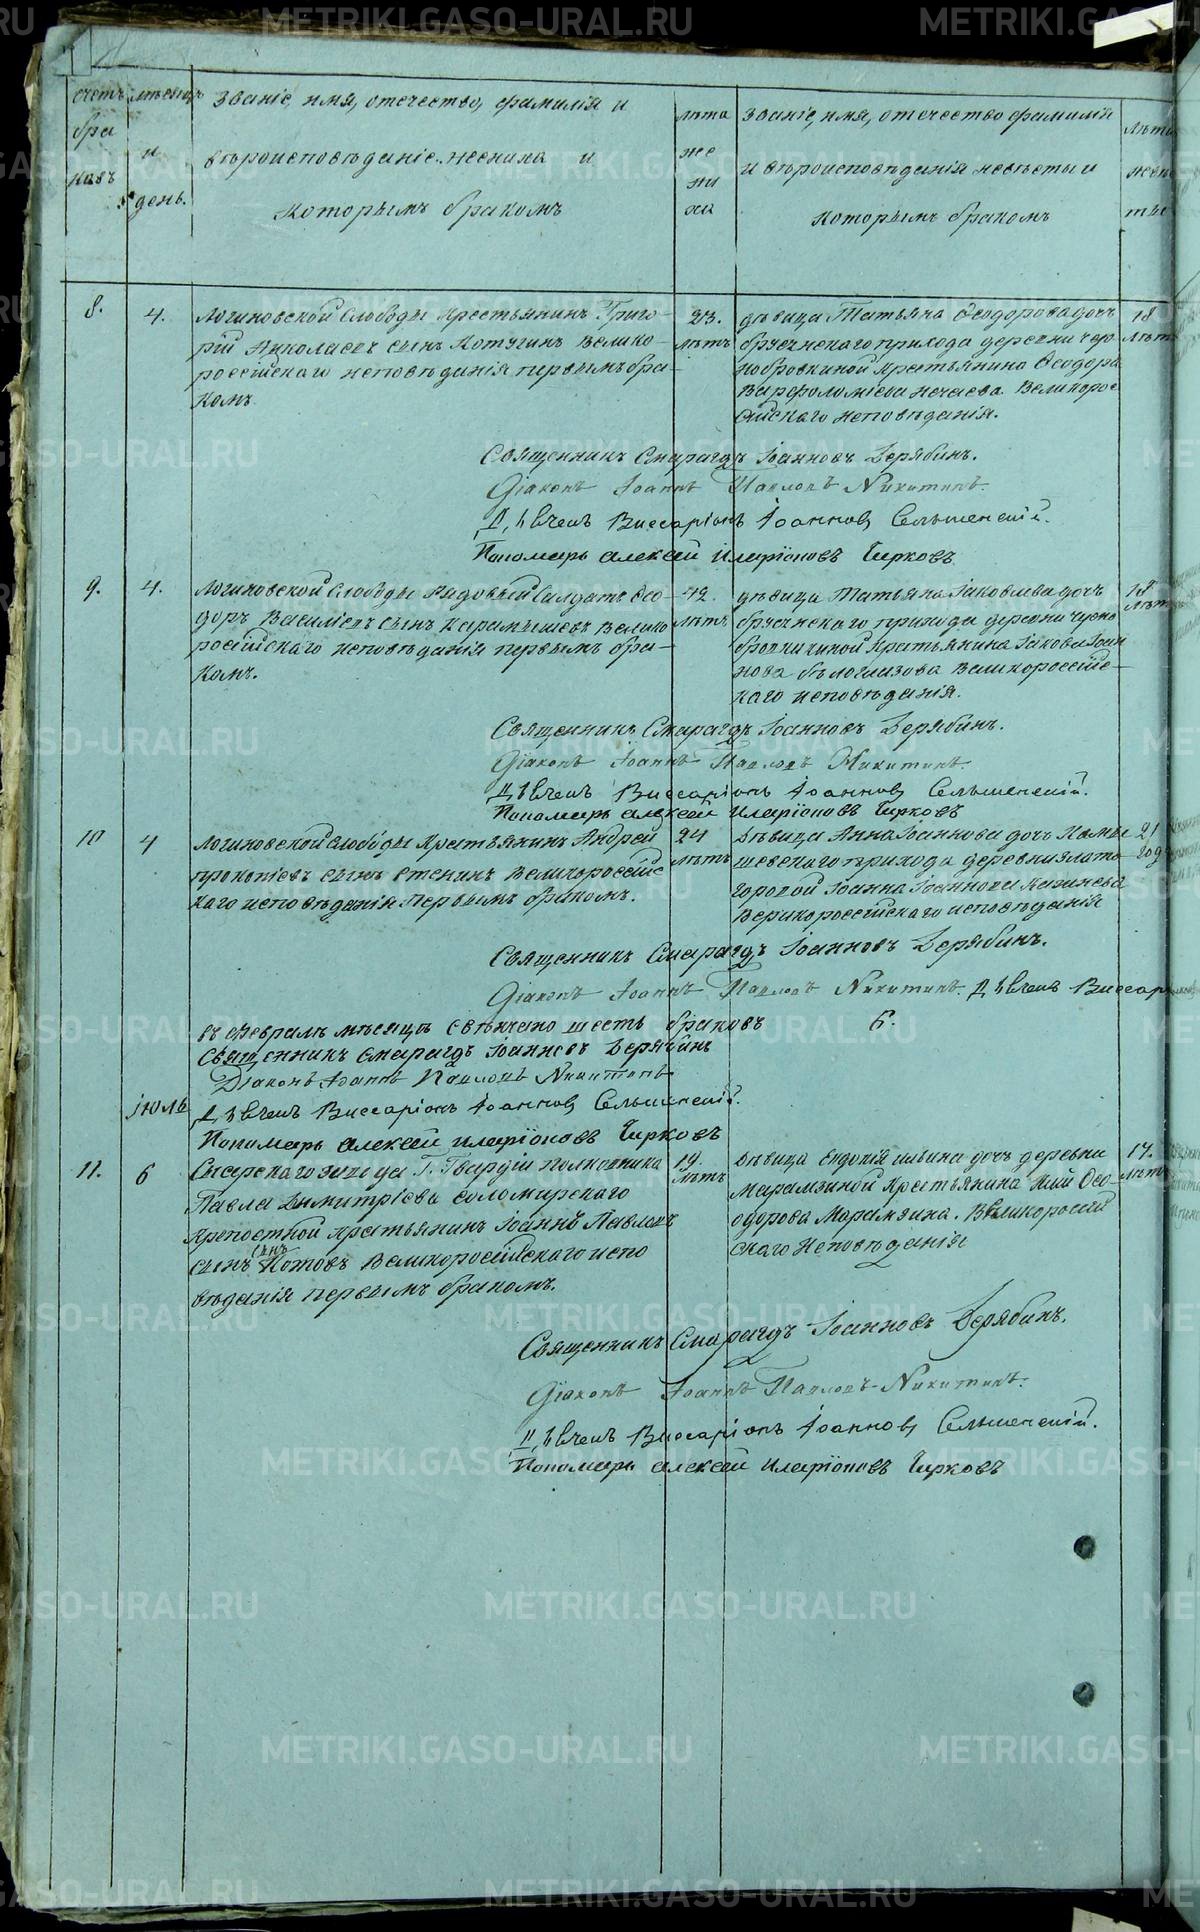 счетъ бра ковъ
мѣсяцъ и день.
Званіе, имя, отечество, фамилія и
вѣроисповѣданіе жениха и
которымъ бракомъ
лѣта же ни ха
Званіе, имя, отечество фамилія
и вѣроисповѣданія невѣсты и
которымъ бракомъ
лѣта невѣ ты
8.
4.
Логиновской Слободы Крестьянинъ Григо-
рій Николаевъ сынъ Котугинъ Велико-
россійскаго исповѣданія первымъ бра-
комъ
23.
лѣтъ
дѣвица Татьяна Ѳеодорова дочь
брусянскаго прихода деревни черно
бровкиной крестьянина Ѳеодора
Варфоломіева Нечаева Великорос
сійскаго исповѣданія.
18
лѣт
Священникъ Смарагдъ Іоанновъ Дерябинъ.
Діаконъ Іоаннъ Павловъ Никитинъ.
Дьячекъ Виссаріонъ Іоанновъ Сельменскій.
Пономарь алексѣй иларіоновъ Чирковъ
9.
4.
Логиновской Слободы рядовый салдатъ Ѳео-
доръ Василіевъ сынъ Карамышевъ Велико
россійскаго исповѣданія первымъ бра-
комъ.
42.
лѣтъ
дѣвица Татьяна Іаковлева дочь
брусянскаго прихода деревни черно
бровкиной Крестьянина Іакова Іоан
нова бѣлоглазова Великороссійс-
каго исповѣданія.
18
лѣт
Священникъ Смарагдъ Іоанновъ Дерябинъ.
Діаконъ Іоаннъ Павловъ Никитинъ.
Дьячекъ Виссаріонъ Іоанновъ Сельменскій.
Пономарь алексѣй иларіоновъ Чирковъ
10
4
Логиновской слободы Крестьянинъ Андрей
прокопіевъ сынъ Стенинъ Великороссійс
каго исповѣданія первымъ бракомъ.
24
лѣтъ
Дѣвица Анна Іоаннова дочь Камы
шевскаго прихода деревни злато-
горовой Іоанна Іоаннова
Верикороссійскаго исповѣданія
21
год
Священникъ Смарагдъ Іоанновъ Дерябинъ.
Діаконъ Іоаннъ Павловъ Никитинъ. Дьячекъ Виссар
въ февралѣ мѣсяцѣ свѣнчано шесть браковъ 6.
Священникъ Смарагдъ Іоанновъ Дерябинъ
Діаконъ Іоаннъ Павловъ Никитинъ
іюль
Дьячекъ Виссаріонъ Іоанновъ Сельменскій.
Пономарь алексѣй иларіоновъ Чирковъ
11.
6
Сысерскаго завода Г. Гвардіи полковника
Павла Димитріева Соломирскаго
крепостной крестьянинъ Іоаннъ Павловъ
сынъ Котовъ Великороссійскаго испо
вѣданія первымъ бракомъ.
19.
лѣтъ
Дѣвица Евдокія ильина дочь деревни
марамзиной Крестьянина Иліи Ѳео-
одорова Марамзина. Великороссій
скаго исповѣданія
17.
лѣт
Священникъ Смарагдъ Іоанновъ Дерябинъ.
Діаконъ Іоаннъ Павловъ Никитинъ.
Дьячекъ Виссаріонъ Іоанновъ Сельменскій.
Пономарь алексѣй иларіоновъ Чирковъ
METRIKI.GASO-URAL.RU